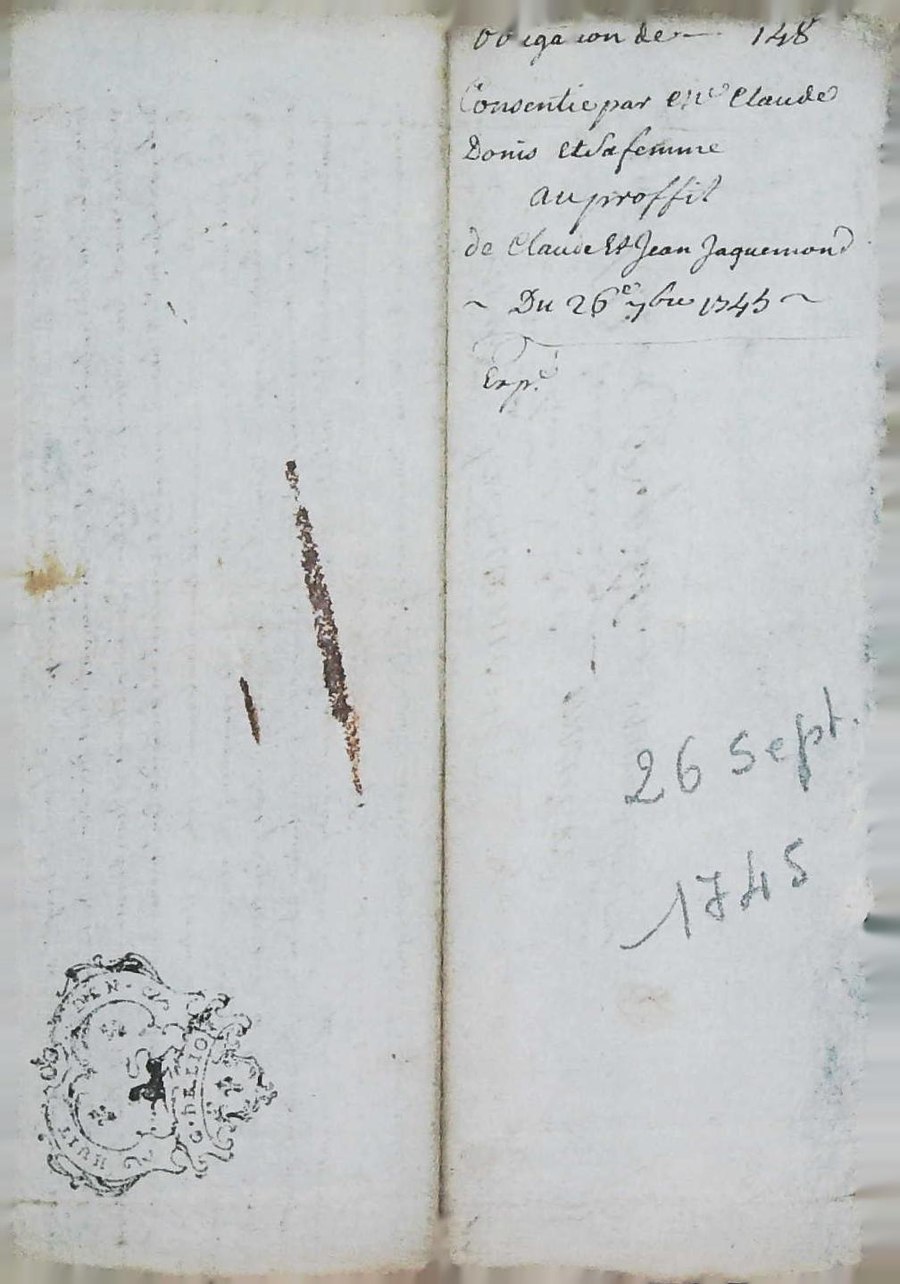 Obligation de 148
Consentie par Claude
Donis et Sa femme
au proffit
de Claude Et Jean Jaquemond
~ Du 26e 7bre 1745 ~
Expé
26 Sept.
1745
G. DE LIO
HUIT